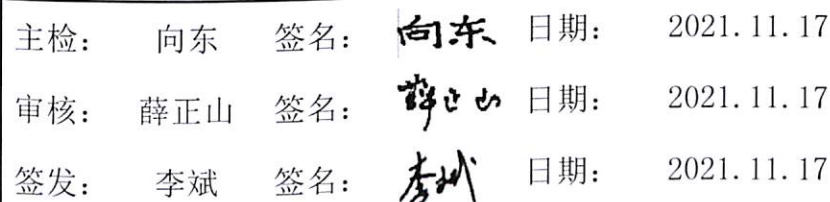 主检： 向东 签名： 向东 日期： 2021.11.17
审核： 薛正山 签名： 薛正山 日期： 2021.11.17
签发： 李斌 签名： 李斌 日期： 2021.11.17